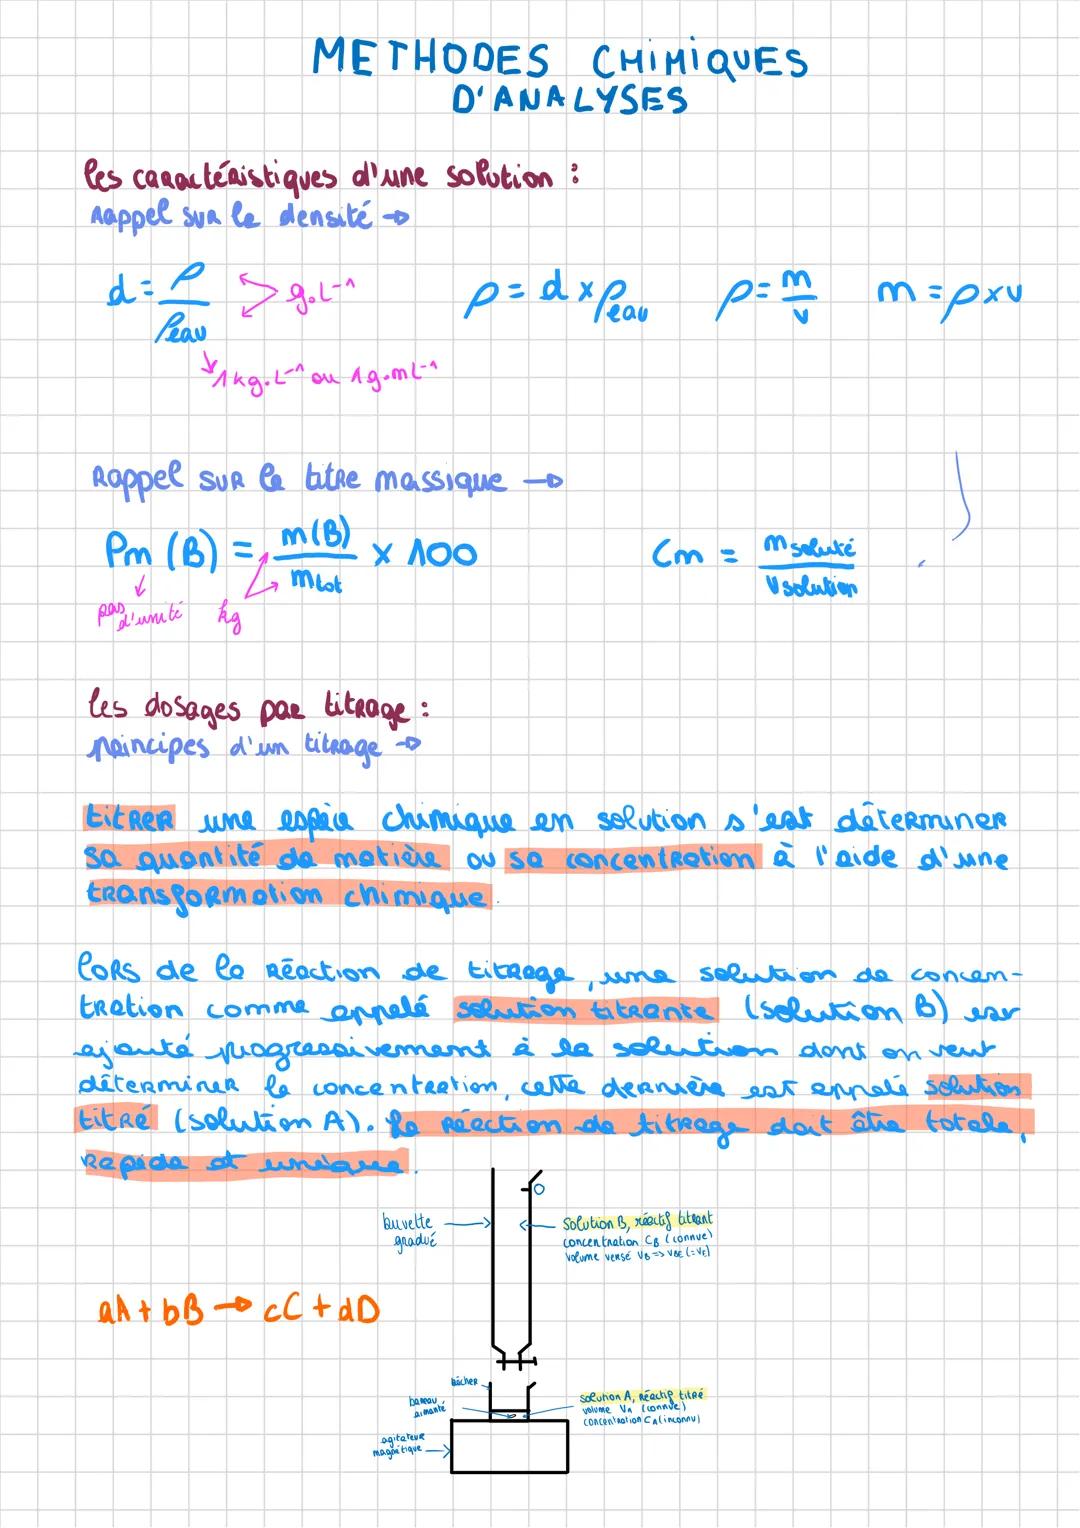 METHODES CHIMIQUES
D'ANALYSES
les caractéristiques d'une solution :
rappel sur la densité →
d = ρ / ρeau
g.L⁻¹
1 kg.L⁻¹ ou 1 g.mL⁻¹
ρ = d x ρeau
ρ = m / v
m = ρ x v
Rappel sur le titre massique →
Pm (B) = m(B) / mtot x 100
pas d'unité
kg
Cm = m soluté / V solution
les dosages par titrage :
principes d'un titrage →
titrer une espèce chimique en solution s'est déterminer
sa quantité de matière ou sa concentration à l'aide d'une
transformation chimique.
lors de la réaction de titrage, une solution de concen-
tration comme appelé solution titrante (solution B) est
ajouté progressivement à la solution dont on veut
déterminer la concentration, cette dernière est appelé solution
titré (solution A). La réaction de titrage doit être totale,
rapide et unique.
buvette
gradué
solution B, réactif titrant
concentration CB (connue)
volume versé VB => VBE (=VE)
aA + bB → cC + dD
bécher
bareau
aimanté
agitateur
magnétique
solution A, réactif titré
volume VA (connue)
concentration CA (inconnu)